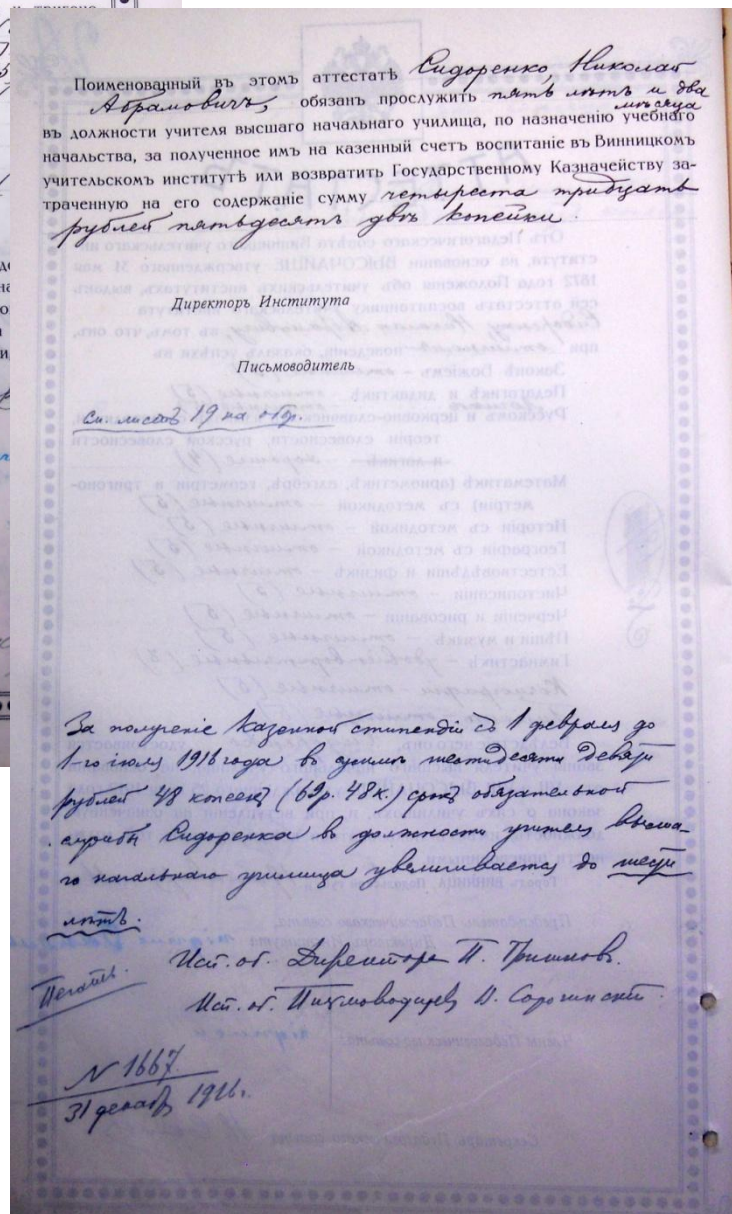 Поименованный въ этомъ аттестатѣ Сидоренко, Николай
Абрамовичъ, обязан прослужить пять лѣтъ и два
мѣсяца
въ должности учителя высшаго начальнаго училища, по назначенію учебнаго
начальства, за полученное имъ на казенный счетъ воспитаніе въ Винницкомъ
учительскомъ институтѣ или возвратить Государственному Казначейству за-
траченную на его содержаніе сумму четыреста тридцать
рублей пятьдесятъ двѣ копейки.
Директоръ Института
Письмоводитель
См. листъ 19 на обор.
За полученіе казенной стипендіи съ 1 февраля до
1-го іюля 1916 года въ суммѣ шестидесяти девяти
рублей 48 копеек (69р. 48к.) срокъ обязательной
службы Сидоренка в должности учителя высша-
го начальнаго училища увеличивается до шести
лѣтъ.
Исп. об. Директора П.
Печать.
Исп. об. Письмоводителя
N 1667.
31 декабря 1916г.